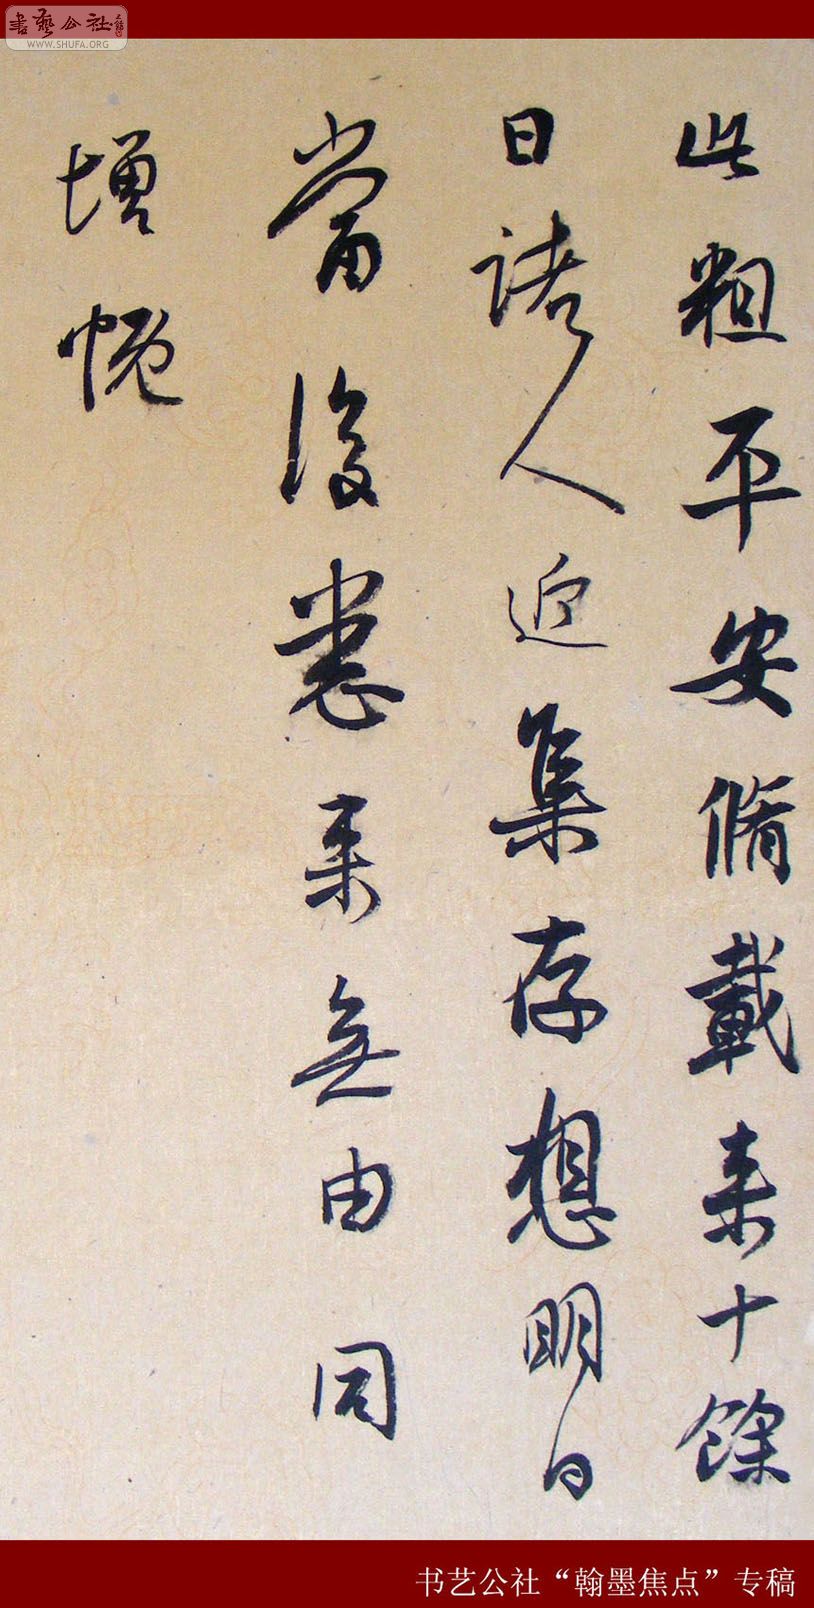 書藝公社
WWW.SHUFA.ORG
此粗平安脩載来十餘
日諸人近集存想明日
當復悉来無由同
增慨
书艺公社“翰墨焦点”专稿